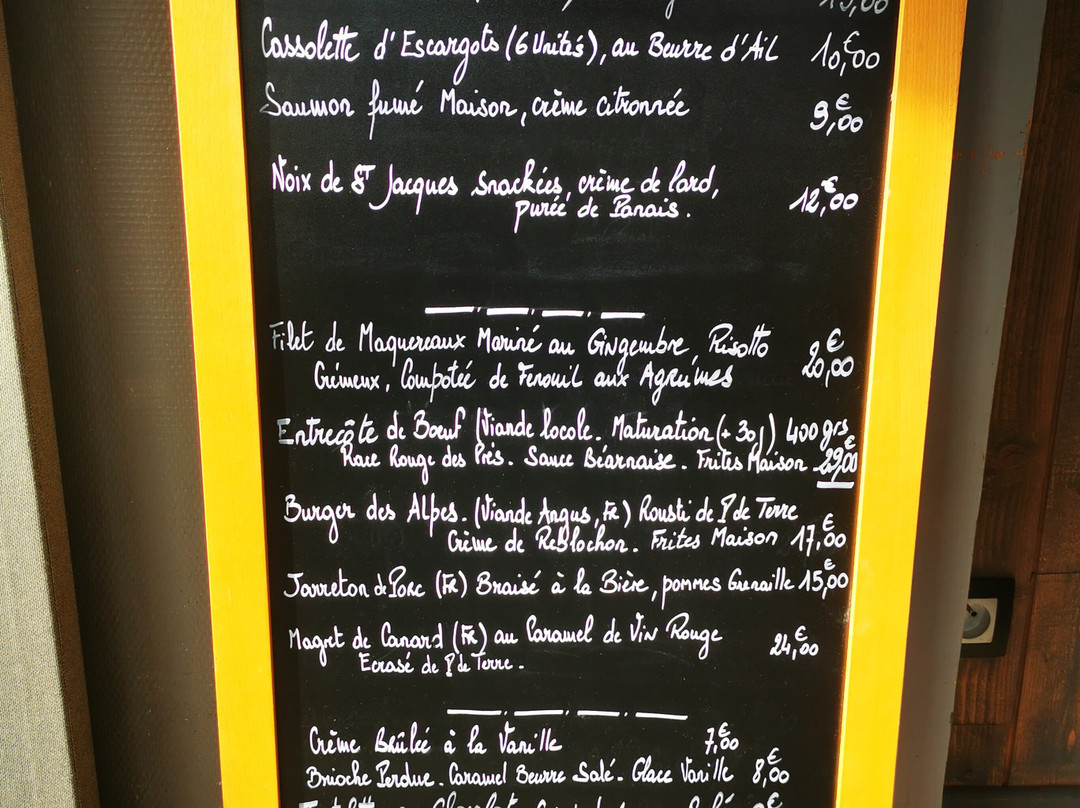 15,00
Cassolette d'Escargots (6 Unités), au Beurre d'Ail 10,€00
Saumon fumé Maison, crème citronnée 9,€00
Noix de ST Jacques Snackées, crème de lard, 12,€00
purée de Panais.
Filet de Maquereaux Mariné au Gingembre, Risotto 20,€00
Crémeux, Compotée de Fenouil aux Agrumes
Entrecôte de Bœuf (Viande locale. Maturation (+ 30j) 400 grs
Race Rouge des Prés. Sauce Béarnaise. Frites Maison 29,€00
Burger des Alpes. (Viande Angus, FR) Rousti de P de Terre
Crème de Reblochon. Frites Maison 17,€00
Jarreton de Porc (FR) Braisé à la Bière, pommes Grenaille 15,€00
Magret de Canard (FR) au Caramel de Vin Rouge 24,€00
Ecrasé de P de Terre.
Crème Brûlée à la Vanille 7,€00
Brioche Perdue. Caramel Beurre Salé. Glace Vanille 8,€00